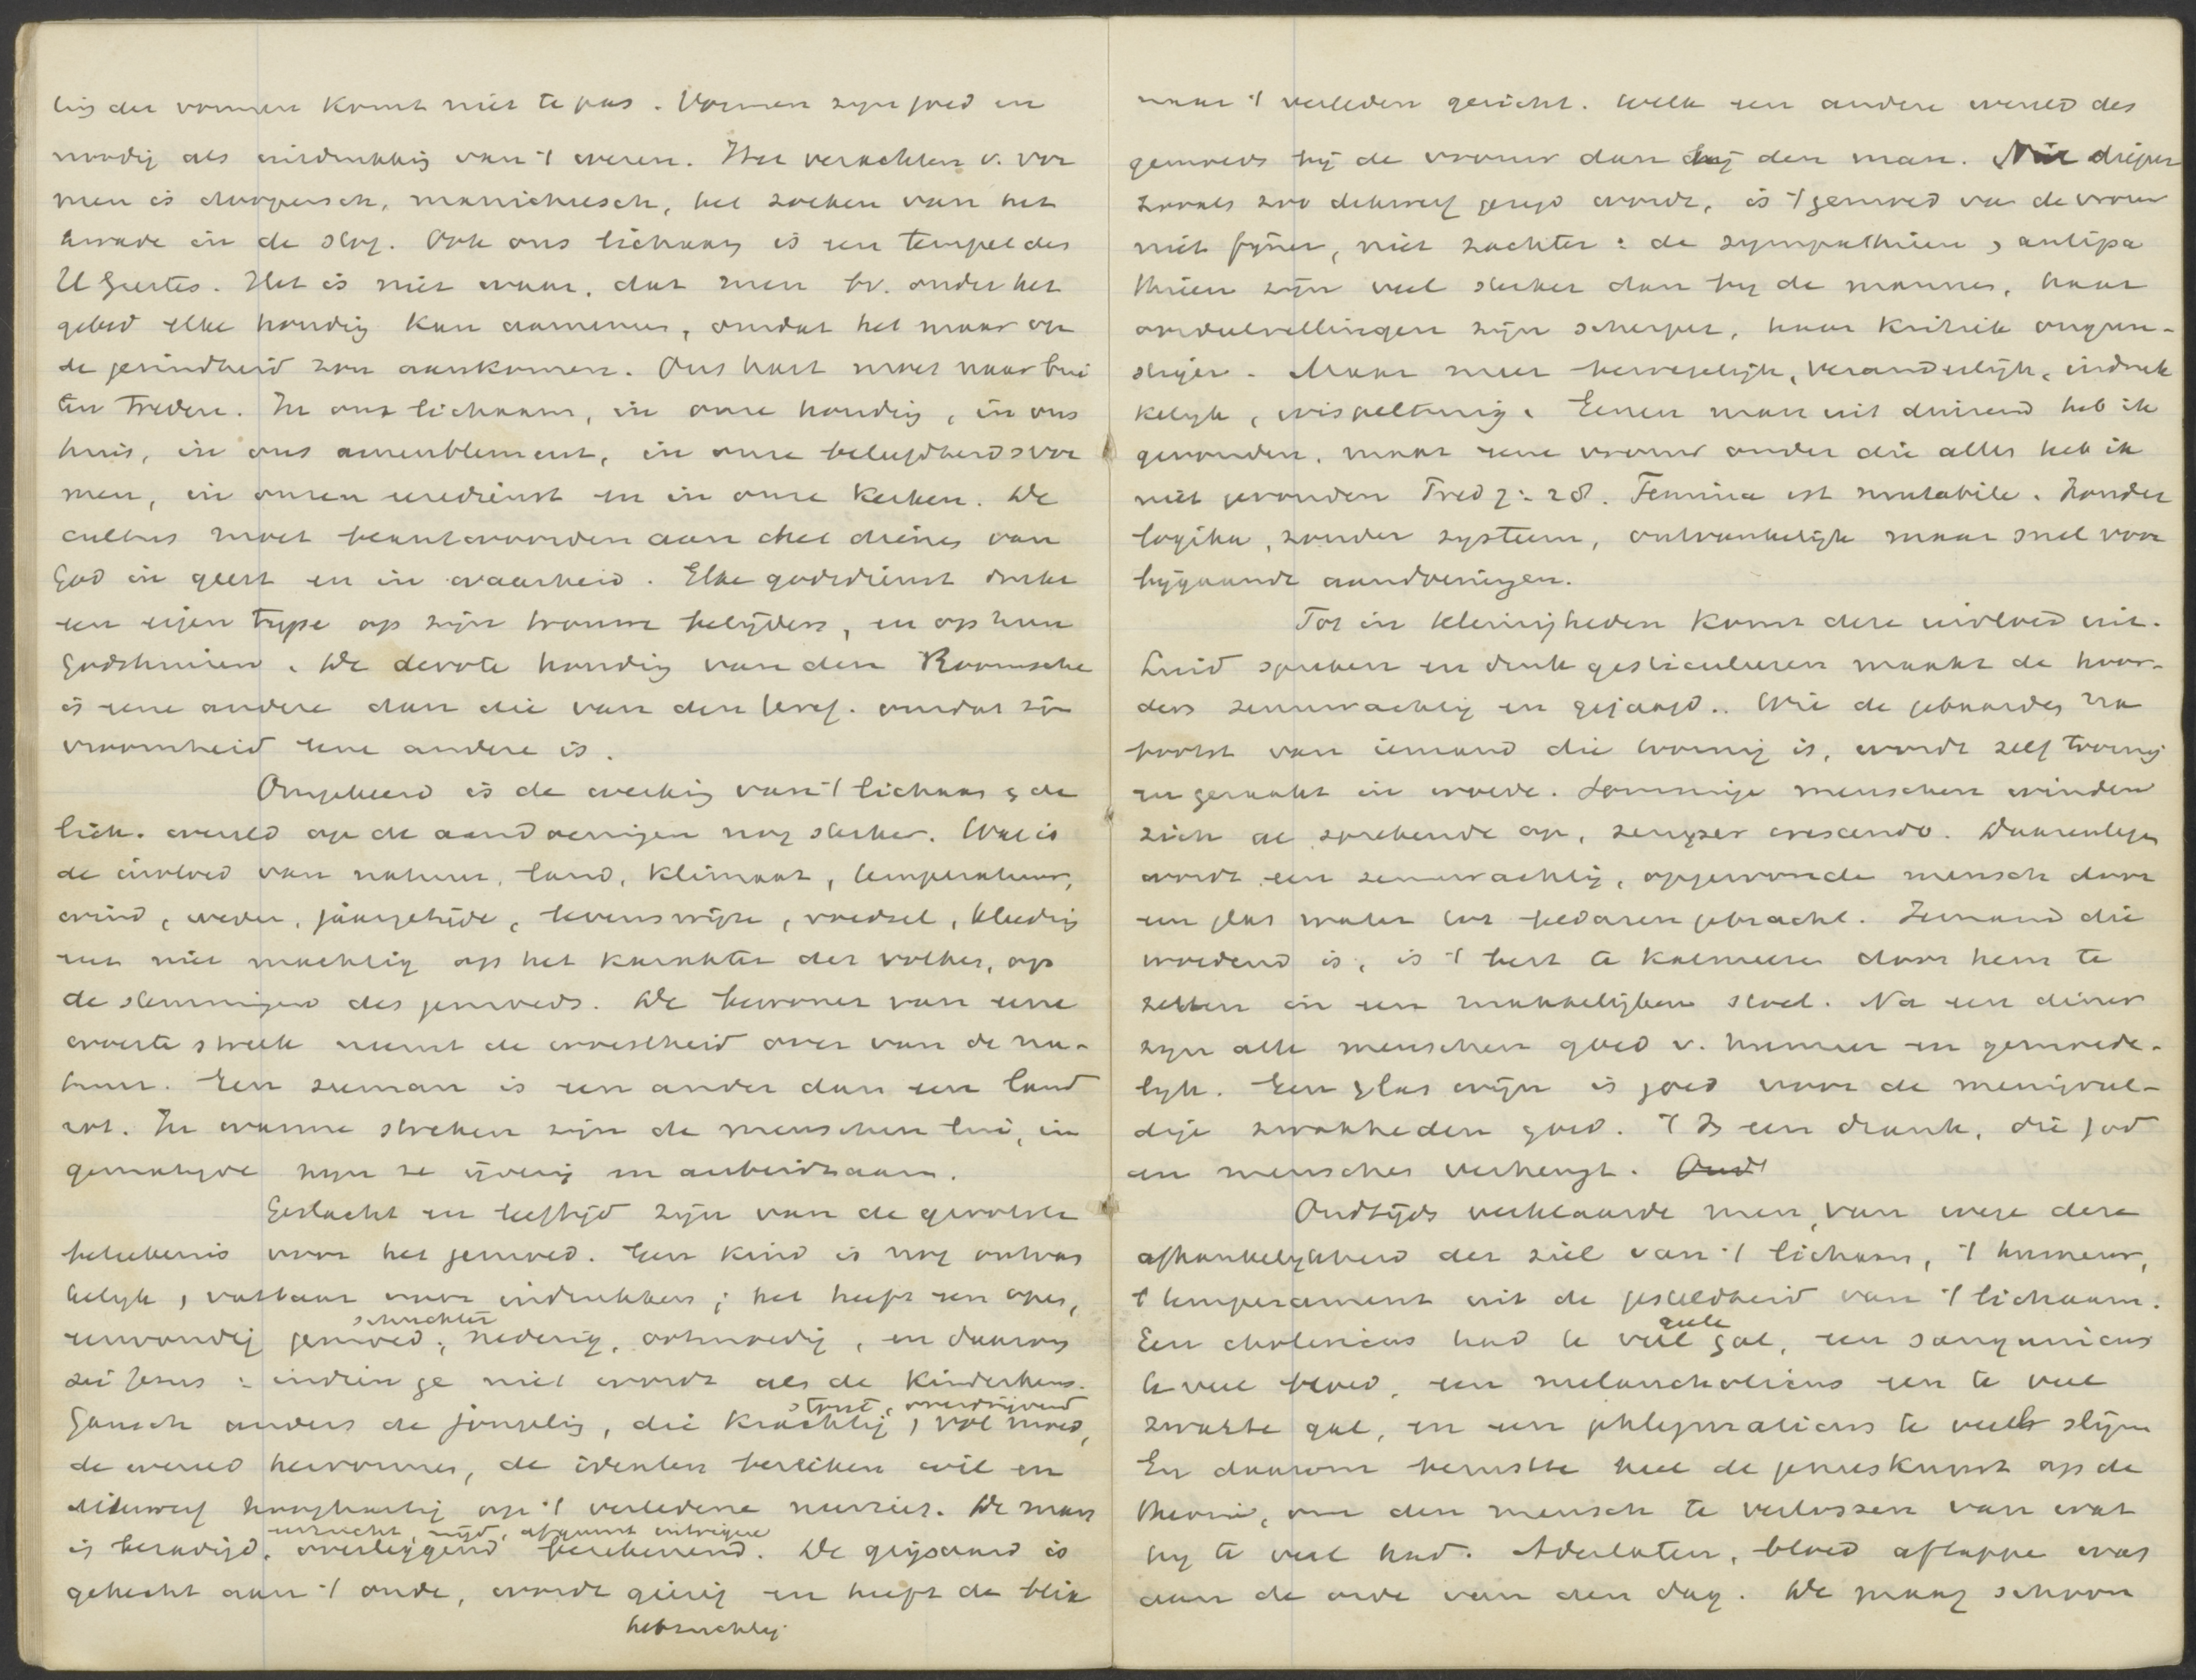 ling der vormen komt niet te pas. Vormen zijn goed en
noodig als uitdrukking van 't wezen. Het verachten v. vor
men is doopersch, manicheesch, het zoeken van het
kwade in de stof. Ook ons lichaam is een tempel des
H Geestes. Het is niet waar, dat men bv. onder het
gebed elke houding kan aannemen, omdat het maar op
de gezindheid zou aankomen. Ons hart moet naar bui
ten treden. In ons lichaam, in onze houding, in ons
huis, in ons ameublement, in onze beleefdheidsvor
men, in onzen eredienst en in onze kerken. De
cultus moet beantwoorden aan het dienen van
God in geest en in waarheid. Elke godsdienst drukt
een eigen type op zijn trouwe belijders, en op hun
Godshuizen. De devote houding van den Roomsche
is eene andere dan die van den Geref. omdat zijn
vroomheid eene andere is.
Omgekeerd is de werking van 't lichaam & de
lich. wereld op de aandoeningen nog sterker. Wat is
de invloed van natuur, land, klimaat, temperatuur,
wind, weder, jaargetijde, levenswijze, voedsel, kleding
enz niet machtig op het karakter der volken, op
de stemmingen des gemoeds. De bewoner van eene
woeste streek neemt de woestheid over van de na-
tuur. Een zeeman is een ander dan een land
rot. In warme streken zijn de menschen lui, in
gematigde zijn ze ijverig en arbeidzaam.
Geslacht en leeftijd zijn van de grootste
beteekenis voor het gemoed. Een kind is nog ontvan
kelijk, vatbaar voor indrukken; het heeft een open,
schuchter
eenvoudig gemoed; nederig, ootmoedig, en daarom
zei Jezus: indien ge niet wordt als de kinderkens.
trots, overdrijvend
Gansch anders de jongeling, die krachtig, vol moed,
de wereld hervormen, de idealen bereiken wil en
dikwerf hooghartig op 't verledene neerziet. De man
eerzucht, nijd, afgunst intrigue
is bezadigd, overleggend berekenend. De grijsaard is
gehecht aan 't oude, wordt gierig en heeft de blik
hebzuchtig
naar 't verleden gericht. Welk een andere wereld des
gemoeds bij de vrouw dan bij den man. Niet dieper
zooals zoo dikwerf gezegd wordt, is 't gemoed van de vrouw
niet fijner, niet zachter: de sympathieen, antipa
thieen zijn veel sterker dan bij de mannen, haar
oordeelvellingen zijn scherper, haar kritiek ongun-
stiger. Maar meer bewegelijk, veranderlijk, indruk
kelijk, wispelturig. Eenen man uit duizend heb ik
gevonden, maar eene vrouw onder die allen heb ik
niet gevonden Pred 7:28. Femina est mutabile. Zonder
logika, zonder systeem, ontvankelijk maar snel voor
bijgaande aandoeningen.
Tot in kleinigheden komt deze invloed uit.
Luid spreken en druk gesticuleeren maakt de hoor-
ders zenuwachtig en gejaagd. Wie de gebaarden na
bootst van iemand die toornig is, wordt zelf toornig
en geraakt in woede. Sommige menschen winden
zich al sprekende op, crescendo. Daarentegen
wordt een zenuwachtig, opgewonde mensch door
een glas water tot bedaren gebracht. Iemand die
woedend is, is 't best te kalmeeren door hem te
zetten in een makkelijken stoel. Na een diner
zijn alle menschen goed v. humeur en gemoede-
lijk. Een glas wijn is goed voor de menigvul-
dige zwakheden goed. 't Is een drank, die God
en menschen verheugt. Oud
Oudtijds verklaarde men, van weze deze
afhankelijkheid der ziel van 't lichaam, 't humeur,
't temperament uit de gesteldheid van 't lichaam.
gele
Een cholericus had te veel gal, een sanguinicus
te veel bloed, een melancholicus een te veel
zwarte gal, en een phlegmaticus te veel slijm
En daarom berustte heel de geneeskunst op de
theorie, om den mensch te verlossen van wat
hij te veel had. Aderlaten, bloed aftappen was
aan de orde van den dag. De maag schoon